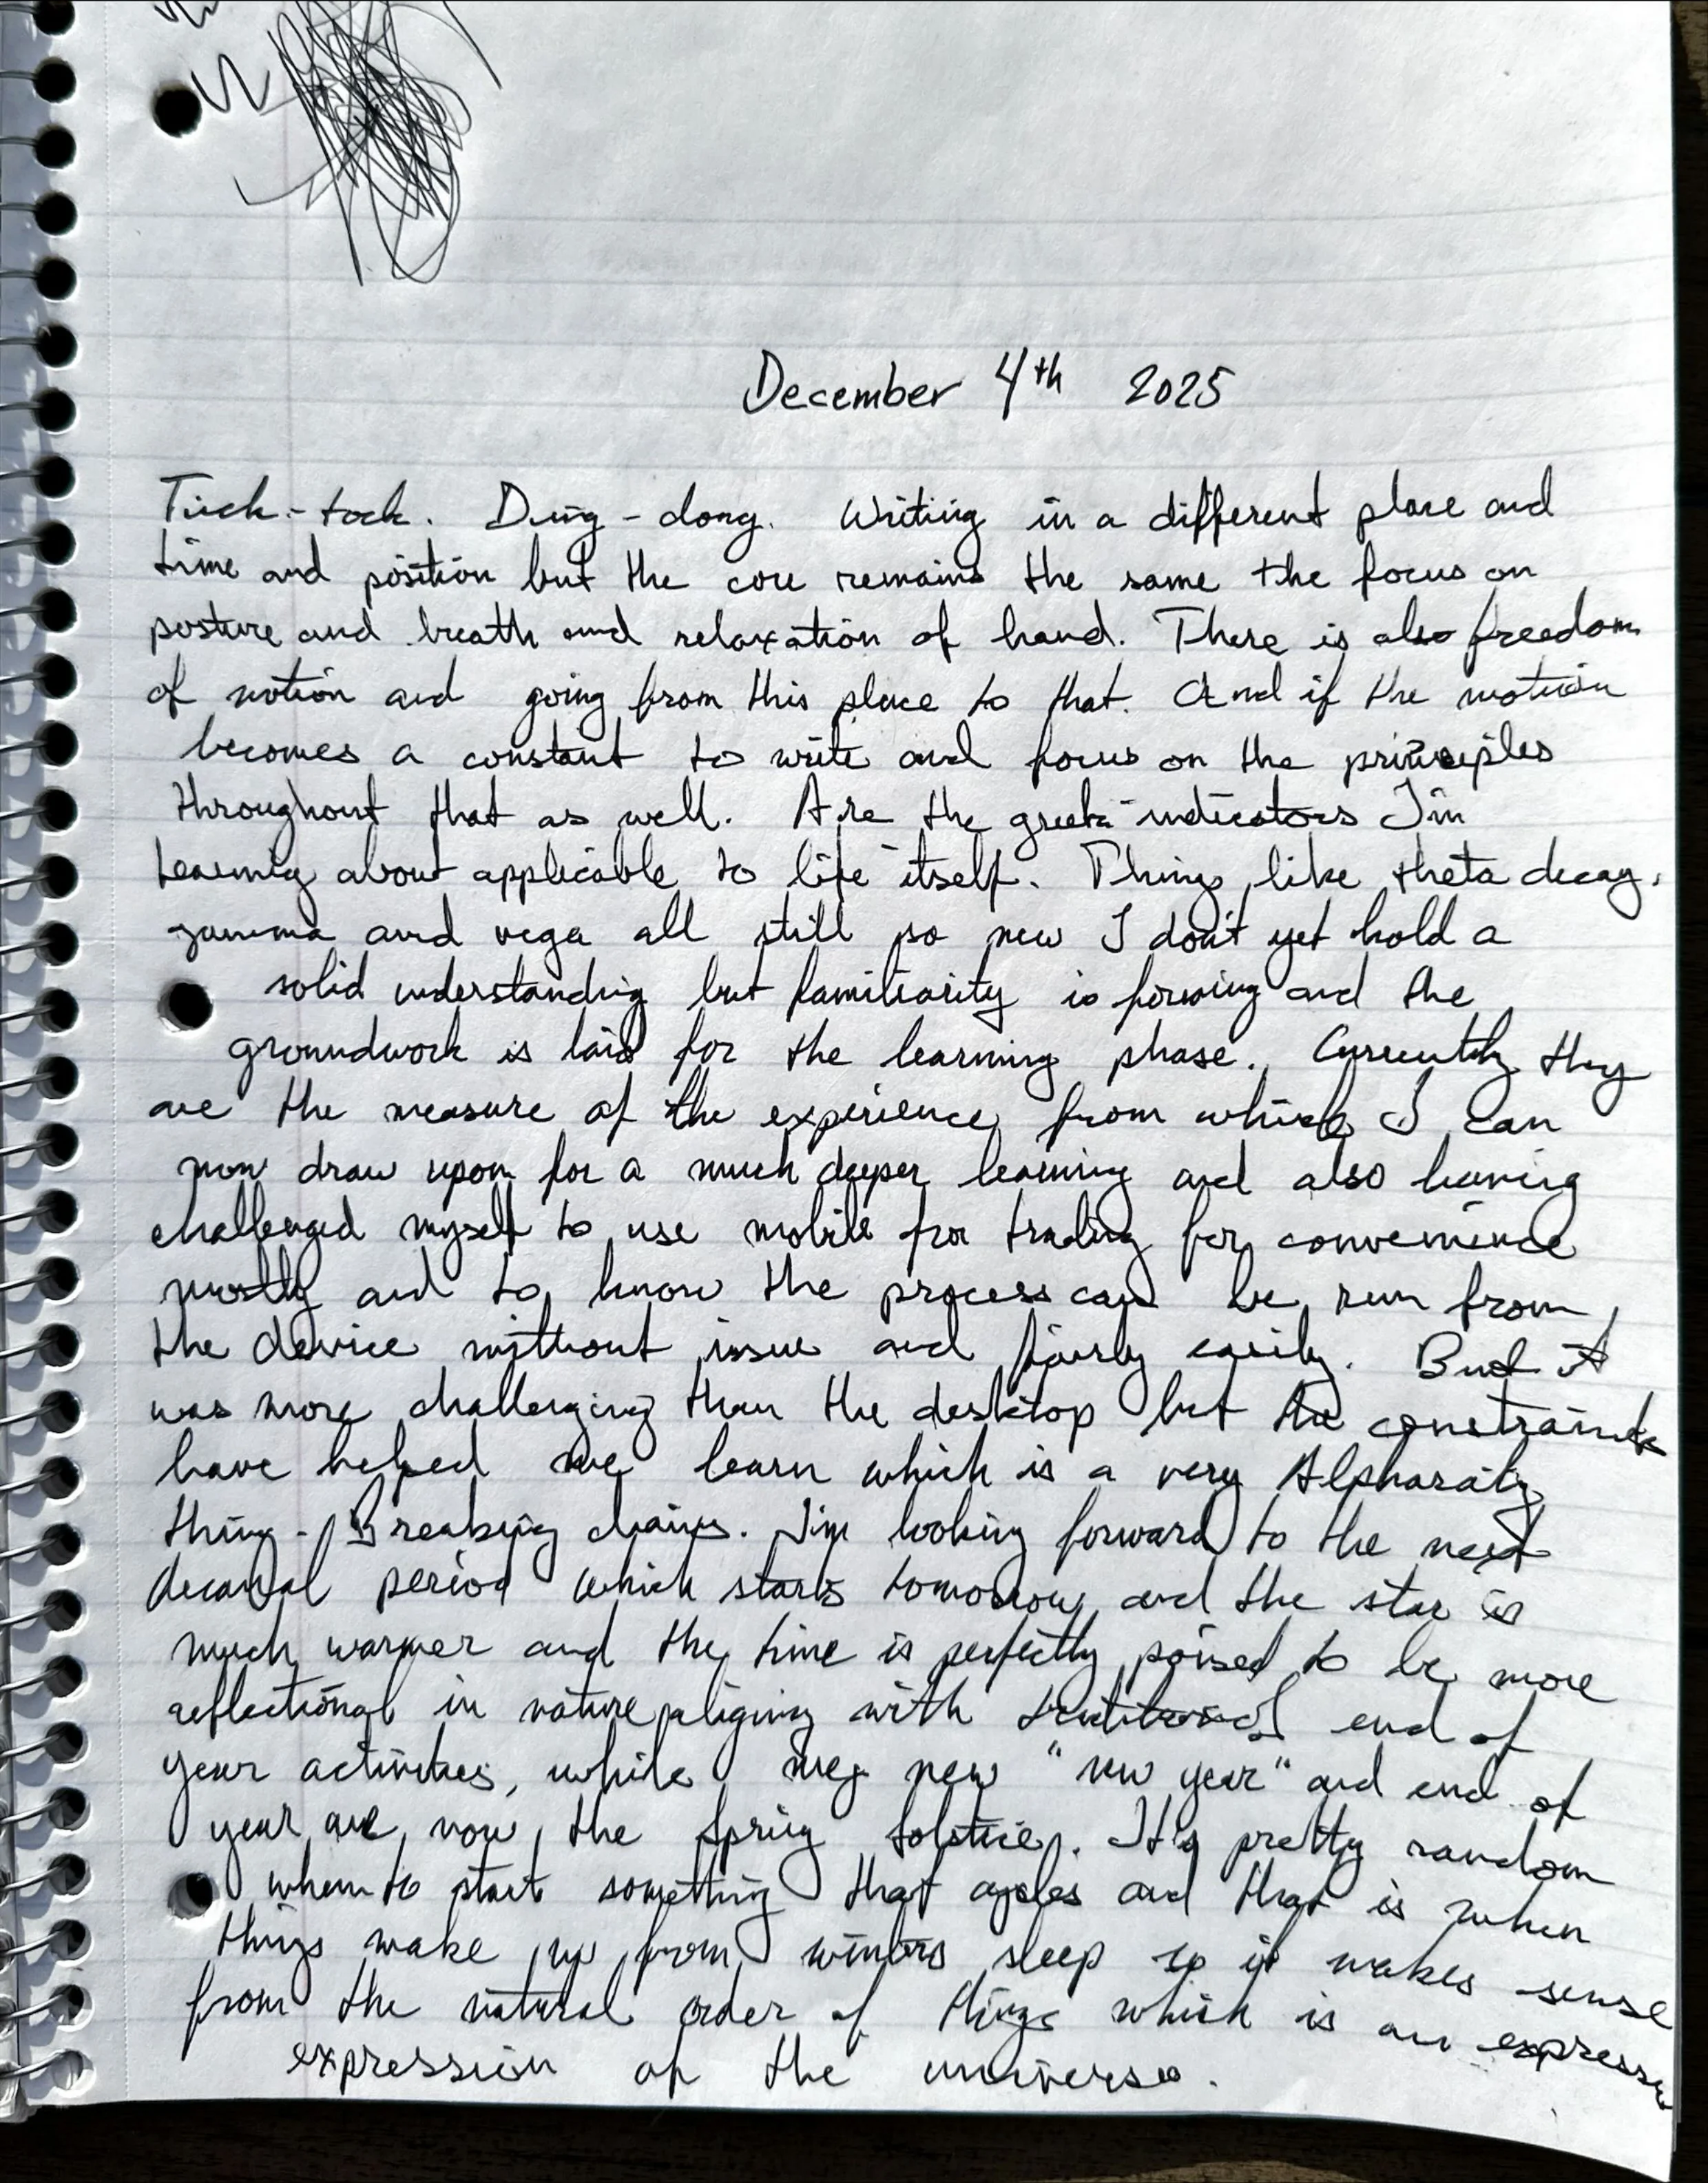 December 4th 2025
Tick-tock. Ding-dong. Writing in a different place and
time and position but the core remains the same the focus on
posture and breath and relaxation of hand. There is also freedom
of motion and going from this place to that. And if the motion
becomes a constant to write and focus on the principles
throughout that as well. Are the greek indicators I'm
learning about applicable to life itself. Things like theta decay,
gamma and vega all still so new I don't yet hold a
solid understanding but familiarity is forming and the
groundwork is laid for the learning phase. Currently they
are the measure of the experience from which I can
now draw upon for a much deeper learning and also having
challenged myself to use mobile for trading for convenience
mostly and to know the process can be run from
the device without issue and fairly easily. But it
was more challenging than the desktop but the constraints
have helped me learn which is a very
thing - Breaking chains. I'm looking forward to the next
decanal period which starts tomorrow and the star is
much warmer and the time is perfectly poised to be more
reflectional in nature aligning with traditional end of
year activities, while my new "new year" and end of
year are now the spring solstice. It's pretty random
when to start something that cycles and that is when
things wake up from winters sleep so it makes sense
from the natural order of things which is an
expression of the universe.